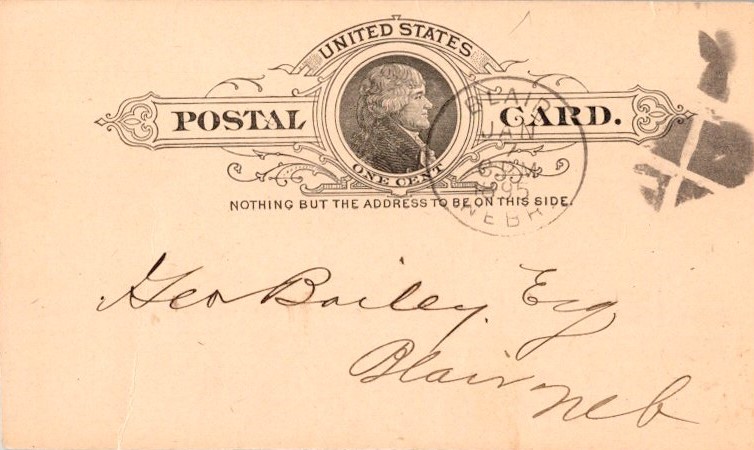 UNITED STATES
POSTAL CARD.
ONE CENT
NOTHING BUT THE ADDRESS TO BE ON THIS SIDE.
BLAIR
JAN
95
NEBR.
Geo Bailey Esq
Blair Neb